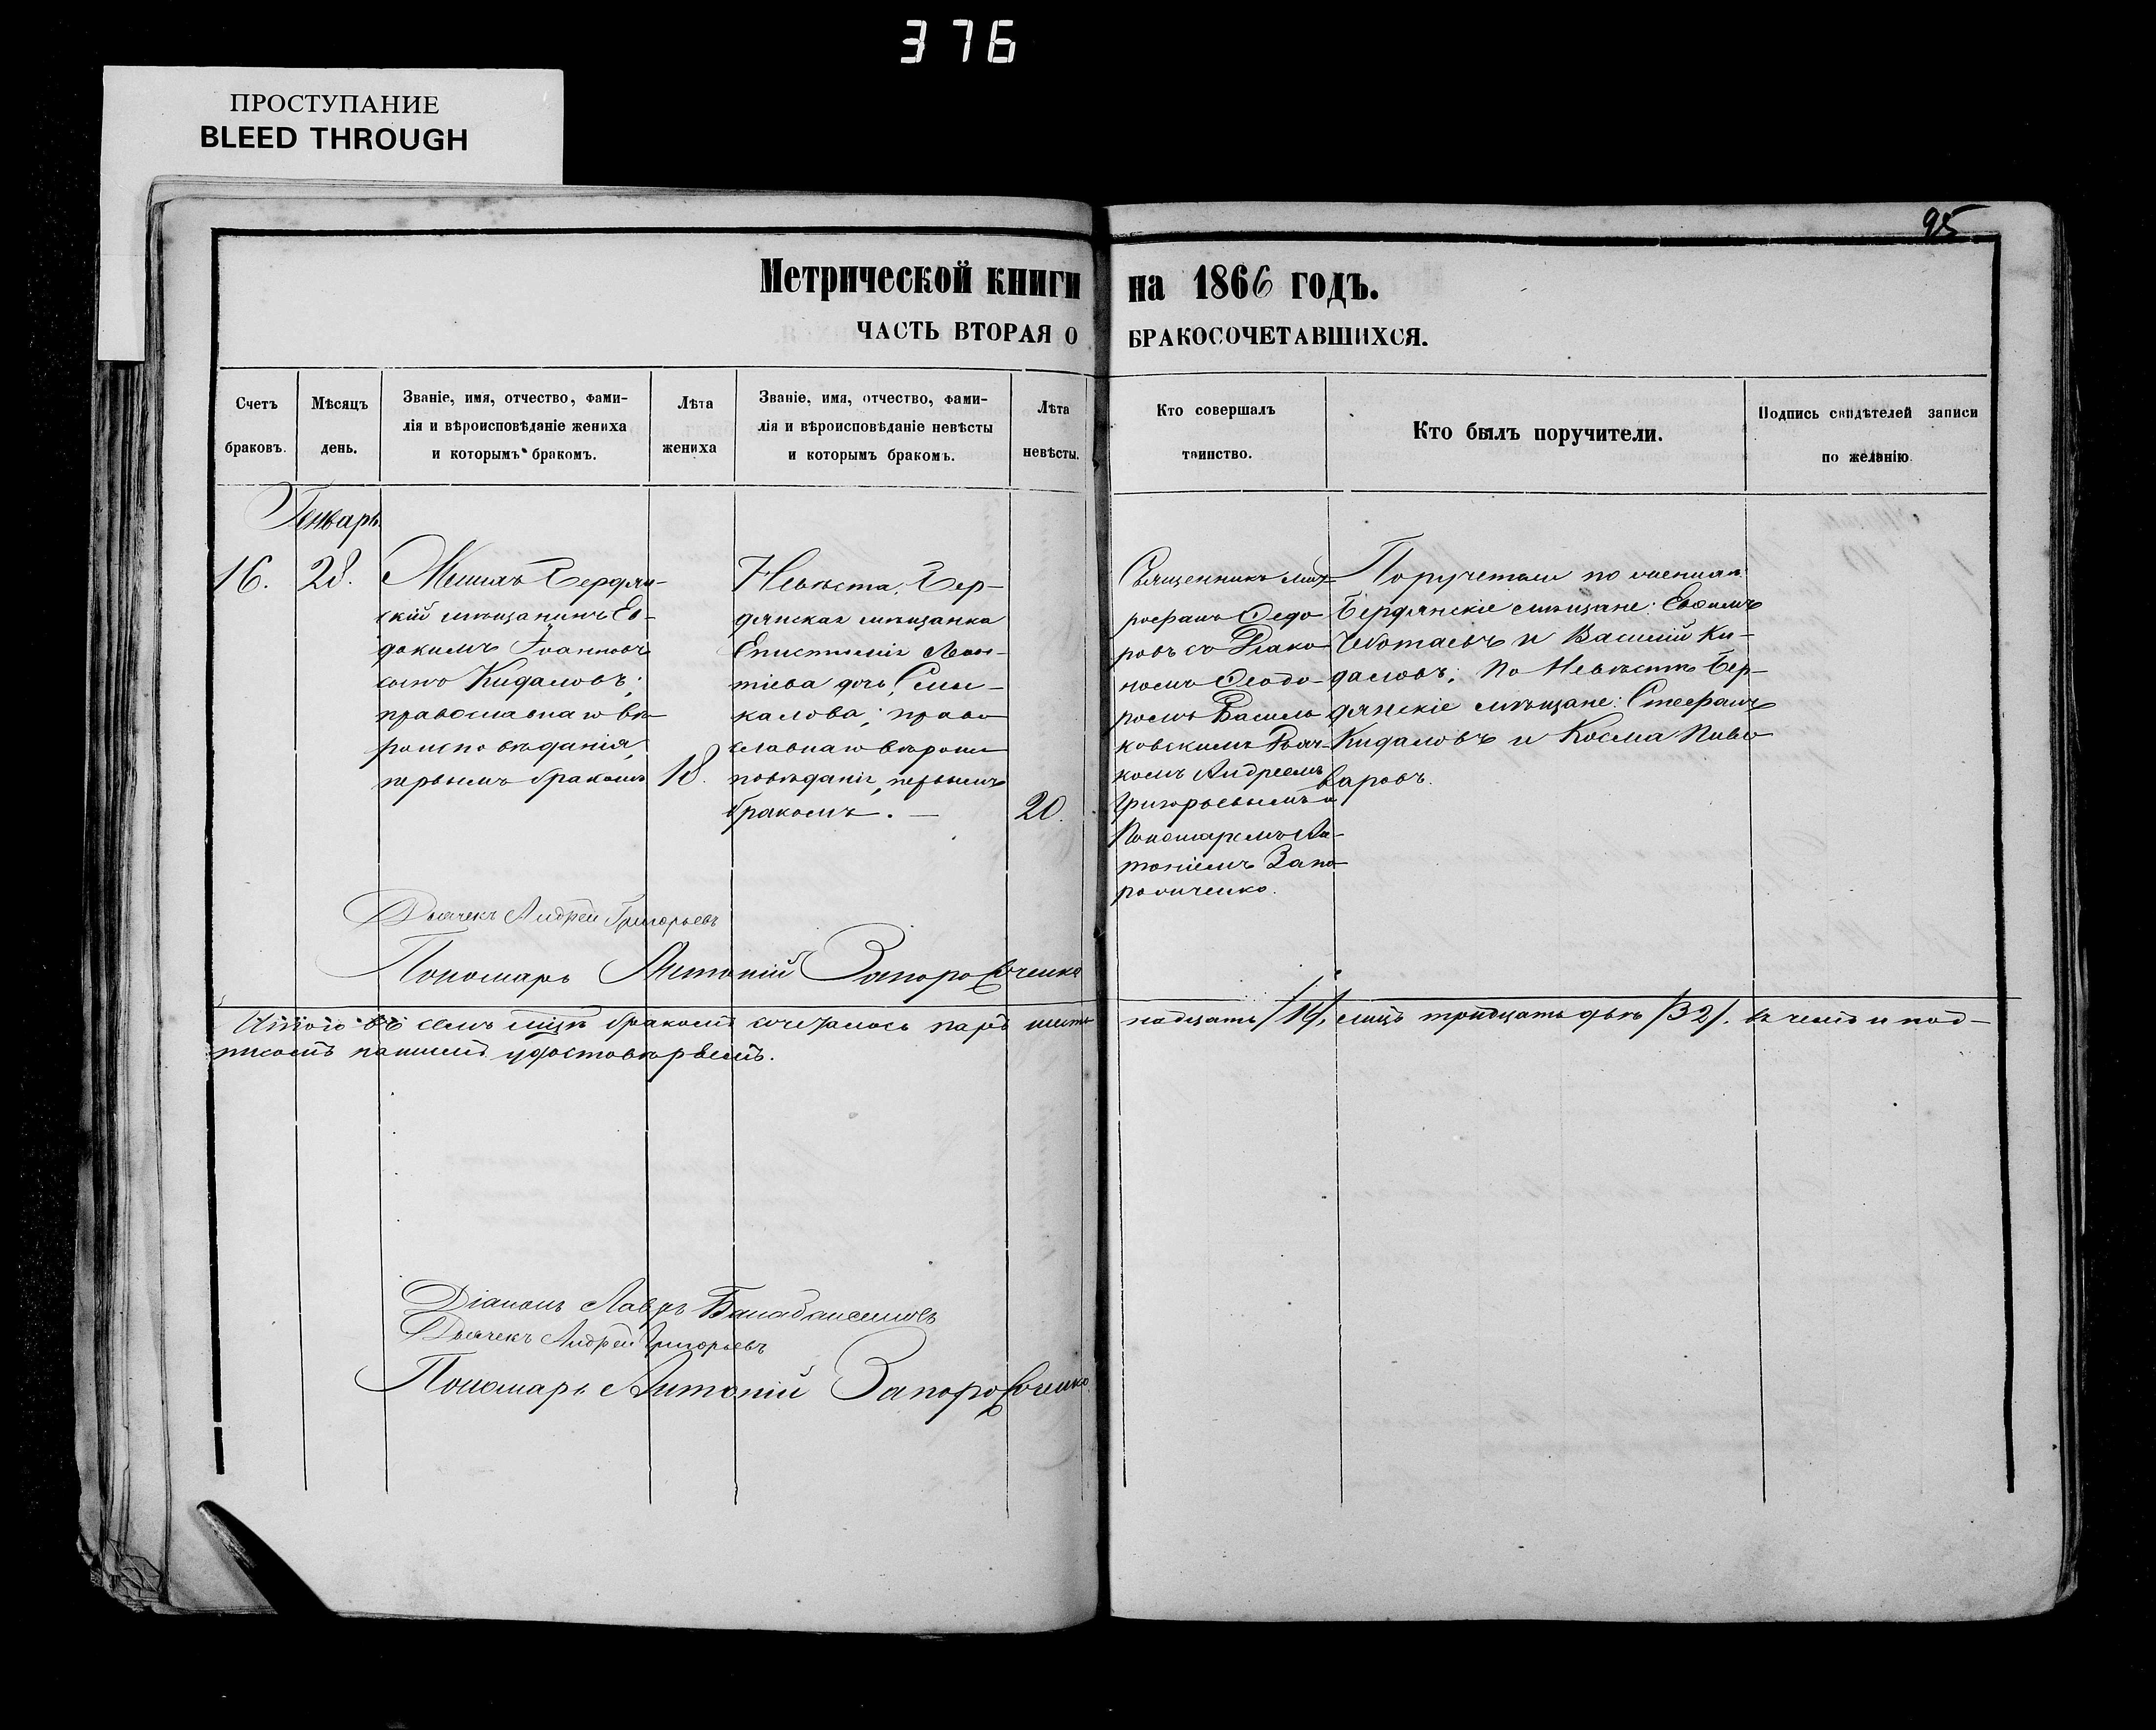 376
ПРОСТУПАНИЕ
BLEED THROUGH
95
Метрической книги на 1866 годъ.
ЧАСТЬ ВТОРАЯ О БРАКОСОЧЕТАВШИХСЯ.
Счетъ браковъ.
Мѣсяцъ день.
Званіе, имя, отчество, фами-
лія и вѣроисповѣданіе жениха
и которымъ бракомъ.
Лѣта жениха
Званіе, имя, отчество, фами-
лія и вѣроисповѣданіе невѣсты
и которымъ бракомъ.
Лѣта невѣсты.
Кто совершалъ
таинство.
Кто былъ поручители.
Подпись свидѣтелей записи
по желанію
Генварь
16.
28.
Женихъ Бердян-
скій мѣщанинъ Ев-
докимъ Іоанновъ
сынъ Кидаловъ;
православнаго вѣ-
роисповѣданія,
первымъ бракомъ
18.
Невѣста, Бер-
дянская мѣщанка
Епистимія Леон-
тіева дочь
калова; право
славнаго вѣроис
повѣданія, первымъ
бракомъ. —
20.
Священникъ Мит-
рофанъ Федо-
ровъ съ Діако
номъ Феодо-
ромъ Василь
ковскимъ Дьяч-
комъ Андреемъ
Григорьевымъ и
Пономаремъ Ан-
тоніемъ Запо
рожченко.
Поручители по женихѣ
Бердянскіе мѣщане: Евфимъ
Чеботаевъ и Василій Ки-
даловъ; По Невѣстѣ Бер-
дянскіе мѣщане: Стефанъ
Кидаловъ и Косма Пиво
варовъ.
Дьячекъ Андрей Григорьевъ
Пономарь Антоній Запорожченко
Итого въ семъ мѣсяцѣ бракомъ сочеталось паръ шест
надцать /16/, лицъ тридцать двѣ /32/. въ чемъ и под-
писомъ нашимъ удостовѣряемъ.
Діаконъ Лавръ
Дьячекъ Андрей Григорьевъ
Пономарь Антоній Запорожченко.